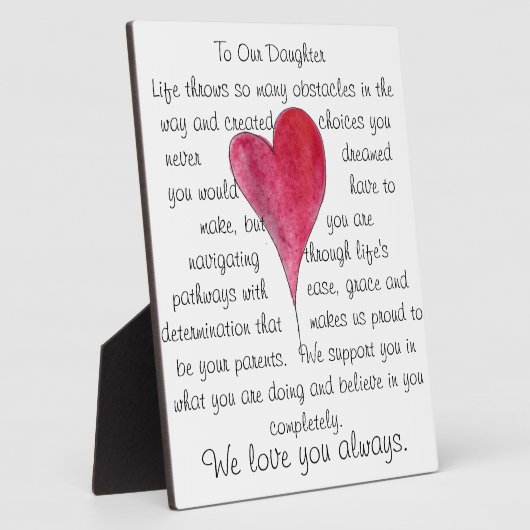 To Our Daughter
Life throws so many obstacles in the
way and created choices you
never dreamed
you would have to
make, but you are
navigating through life's
pathways with ease, grace and
determination that makes us proud to
be your parents. We support you in
what you are doing and believe in you
completely.
We love you always.